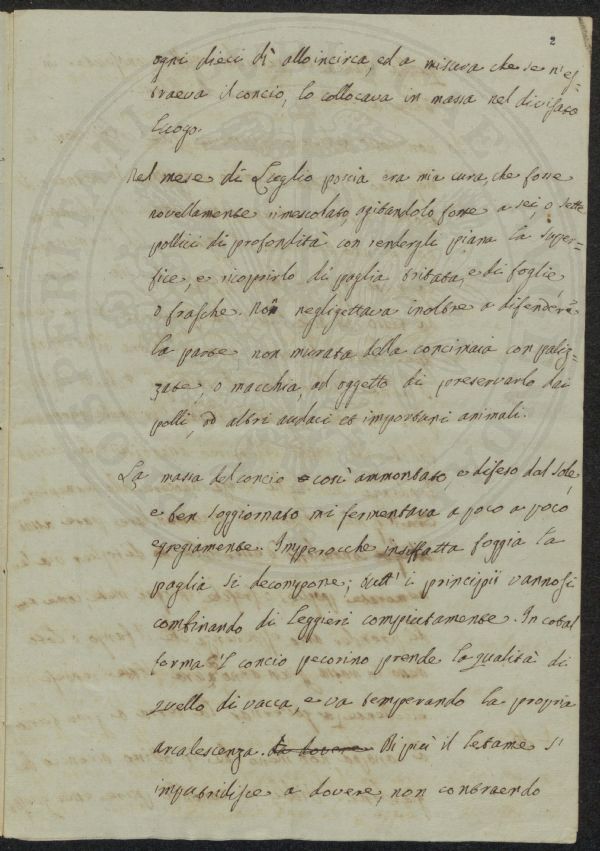 2
ogni dieci dì allo incirca, ed a misura che se n'es-
traeva il concio, lo collocava in massa nel divisato
luogo.
Nel mese di Luglio poscia era mia cura, che fosse
novellamente rimescolato, agitandolo forse a sei, o sette
pollici di profondità con rendergli piana la super-
fice, e ricoprirlo di paglia tritata, e di foglie,
o frasche. Non negligettava inoltre a difendere
la parte non murata della concimaia con paliz-
zate, o macchia, ad oggetto di preservarlo dai
polli, ed altri audaci et importuni animali.
La massa del concio così ammontato, e difeso dal sole,
e ben soggiornato mi fermentava a poco a poco
egregiamente. Imperocche insiffatta foggia la
paglia si decompone; tutt' i principii vannosi
combinando di leggieri compiutamente. In cotal
forma 'l concio pecorino prende la qualità di
quello di vacca, e va temperando la propria
arcalescenza. da dovere Di più il letame s'
imputridisce a dovere, non contraendo